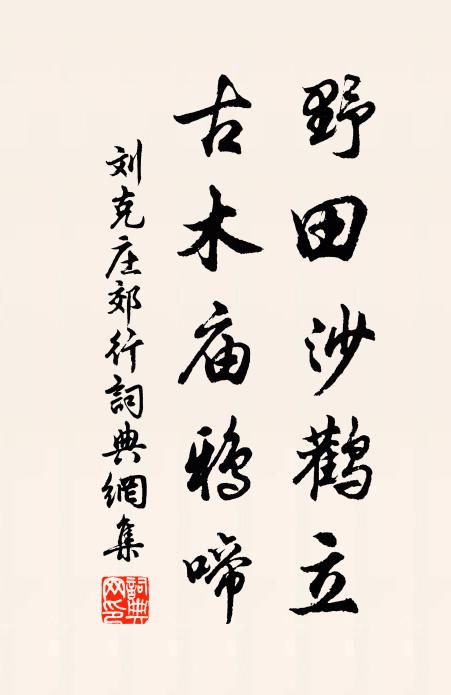 野田沙鸛立
古木庙鴉啼
刘克庄郊行詞典網集
詞典网印